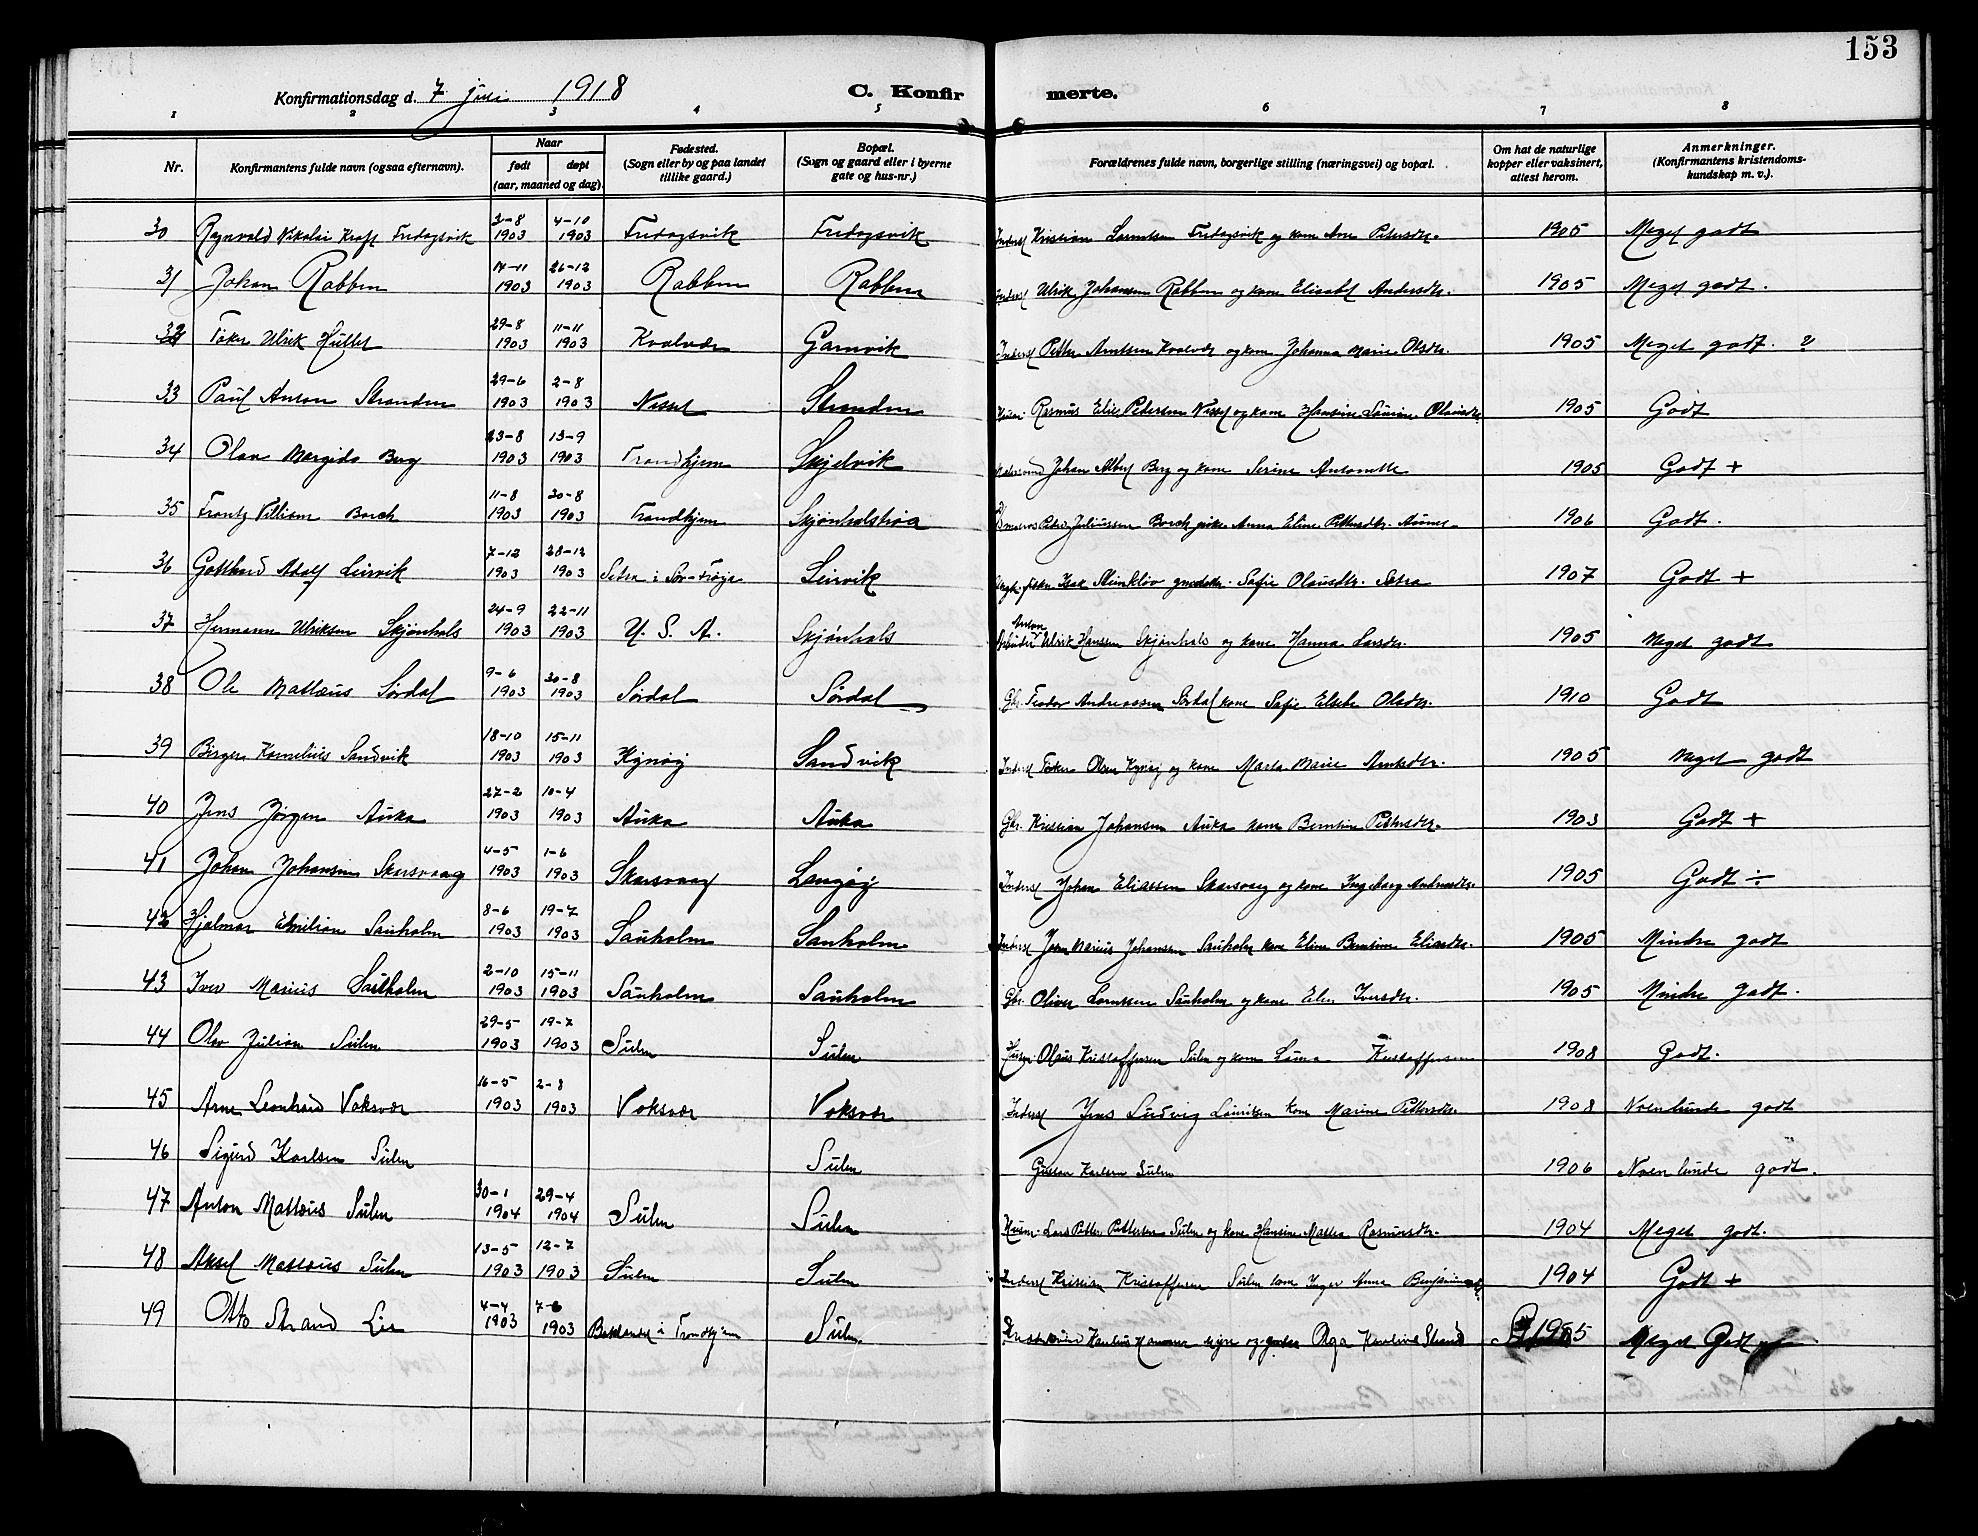 153
Konfirmationsdag d. 7 juli 1918 C. Konfirmerte.
1 2 3 4 5 6 7 8
Nr. Konfirmantens fulde navn (ogsaa efternavn). Naar født døpt (aar, maaned og dag). Fødested. (Sogn eller by og paa landet tillike gaard.) Bopæl. (Sogn og gaard eller i byerne gate og hus-nr.) Forældrenes fulde navn, borgerlige stilling (næringsvei) og bopæl. Om hat de naturlige kopper eller vaksinert, attest herom. Anmerkninger. (Konfirmantens kristendoms-kundskap m. v.).
30 Ragnvald Nikolai Kraft Fredagsvik 3-8 1903 4-10 1903 Fredagsvik Fredagsvik Inderst Kristian Fredagsvik og kone Petersdtr. 1905 Meget godt
31 Johan Rabben 14-11 1903 26-12 1903 Rabben Rabben Inderst Ulrik Johansen Rabben og kone Elisabet Andersdtr. 1905 Meget godt.
32 Ulrik 29-8 1903 11-11 1903 Kvalvær Garnvik Inderst Petter Arntsen Kvalvær og kone Johanna Marie Olsdtr. 1905 Meget godt. 2
33 Paul Anton Stranden 29-6 1903 2-8 1903 Nesset Stranden Rasmus Elias Pedersen Nesset og kone Hansine 1905 Godt
34 Olav Berg 23-8 1903 13-9 1903 Trondhjem Skjelvik Johan Albert Berg og kone Serine Antonette 1905 Godt +
35 Frantz Villiam Borch 11-8 1903 30-8 1903 Trondhjem Skjønhalshoa Juliussen Borch pike Anna Eline Pettersdtr. 1906 Godt.
36 Gotthard Adolf Leirvik 7-12 1903 28-12 1903 Setra i Sør-Frøja Leirvik Isak Steinkløv Sofie Olausdtr. Setra 1907 Godt +
37 Hermann Ulriksen Skjønhals 24-9 1903 22-11 1903 U. S. A. Skjønhals Anton Ulrik Hanssen Skjønhals og kone Hanna Larsdtr. 1905 Meget godt
38 Ole Mattæus Sørdal 9-6 1903 30-8 1903 Sørdal Sørdal Gbr. Teodor Andreassen Sørdal kone Sofie Elsebe Olsdtr. 1910 Godt
39 Birger Kornelius Sandvik 18-10 1903 15-11 1903 Sandvik Inderst Olsen og kone Marta Marie Arntsdtr. 1905 Meget godt
40 Jens Jørgen Auka 27-2 1903 10-4 1903 Auka Auka Gbr. Kristian Johansen Auka kone Berntine Pettersdtr. 1903 Godt +
41 Johan Johansen Skarsvaag 4-5 1903 1-6 1903 Skarsvaag Langøy Inderst Johan Eliassen Skarsvaag og kone Ingeborg Andreasdtr. 1905 Godt ÷
42 Hjalmar Emilian Sauholm 8-6 1903 19-7 1903 Sauholm Sauholm Inderst Marius Johansen Sauholm kone Eline Berntine Eliasdtr. 1905 Mindre godt
43 Iver Marius Sauholm 2-10 1903 15-11 1903 Sauholm Sauholm Gbr. Oliver Lorentsen Sauholm og kone Elen Iversdtr. 1905 Mindre godt.
44 Olav Julian Sulen 29-5 1903 19-7 1903 Sulen Sulen Husm. Olaus Kristoffersen Sulen og kone Laura Kristoffersen 1908 Godt.
45 Arne Leonhard Voksvær 16-5 1903 2-8 1903 Voksvær Voksvær Inderst Jens Ludvig Lauritsen kone Marine Pettersdtr. 1908 Noenlunde godt
46 Sigurd Karlsen Sulen Sulen Gustav Karlsen Sulen 1906 Noenlunde godt.
47 Anton Mattæus Sulen 30-1 1904 29-4 1904 Sulen Sulen Husm. Lars Petter Pettersen Sulen og kone Hansine Mattea Rasmusdtr. 1904 Meget godt.
48 Aksel Mattæus Sulen 13-5 1903 12-7 1903 Sulen Sulen Inderst Kristian Kristoffersen Sulen kone Inger Anna 1904 Godt +
49 Otto Strand Lie 4-4 1903 7-6 1903 Baklandet i Trondhjem Sulen Olga Karoline Strand 1905 Meget Godt